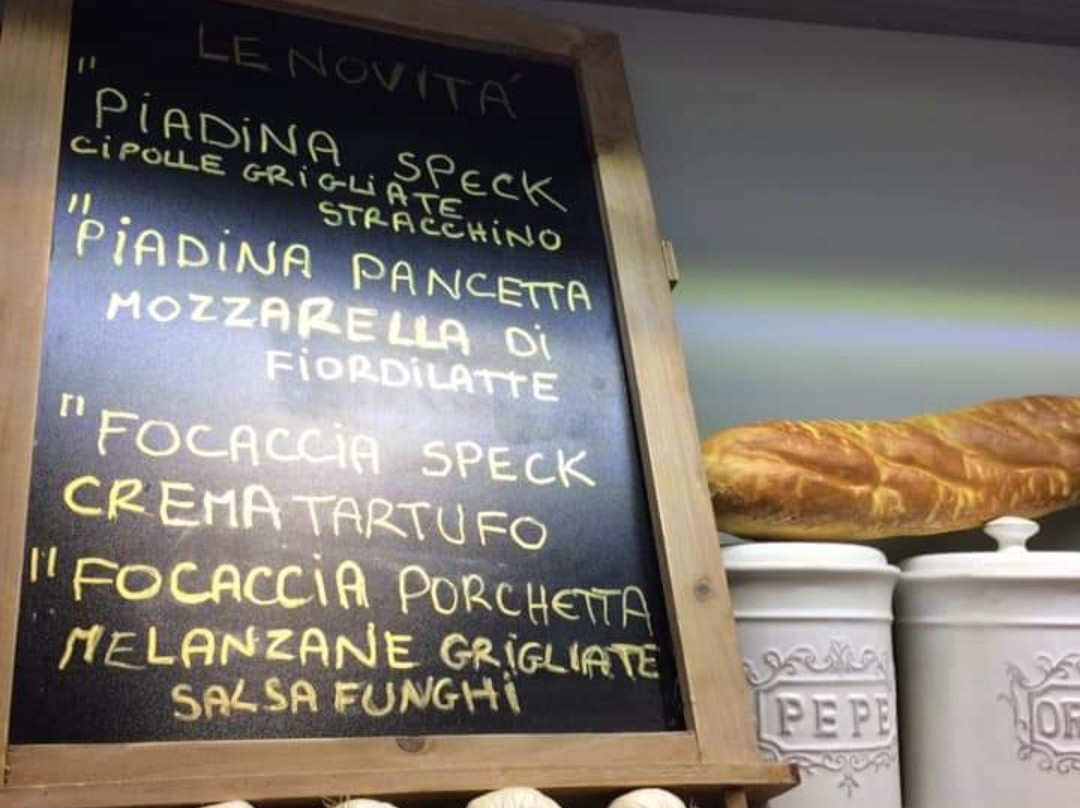 LE NOVITA'
"PiADiNA SPECK
CiPOLLE GRiGLiATE
STRACCHiNO
"PiADiNA PANCETTA
MOZZARELLA Di
FiORDiLATTE
"FOCACCiA SPECK
CREMA TARTUFO
"FOCACCiA PORCHETTA
MELANZANE GRiGLIATE
SALSA FUNGHi
PEPE